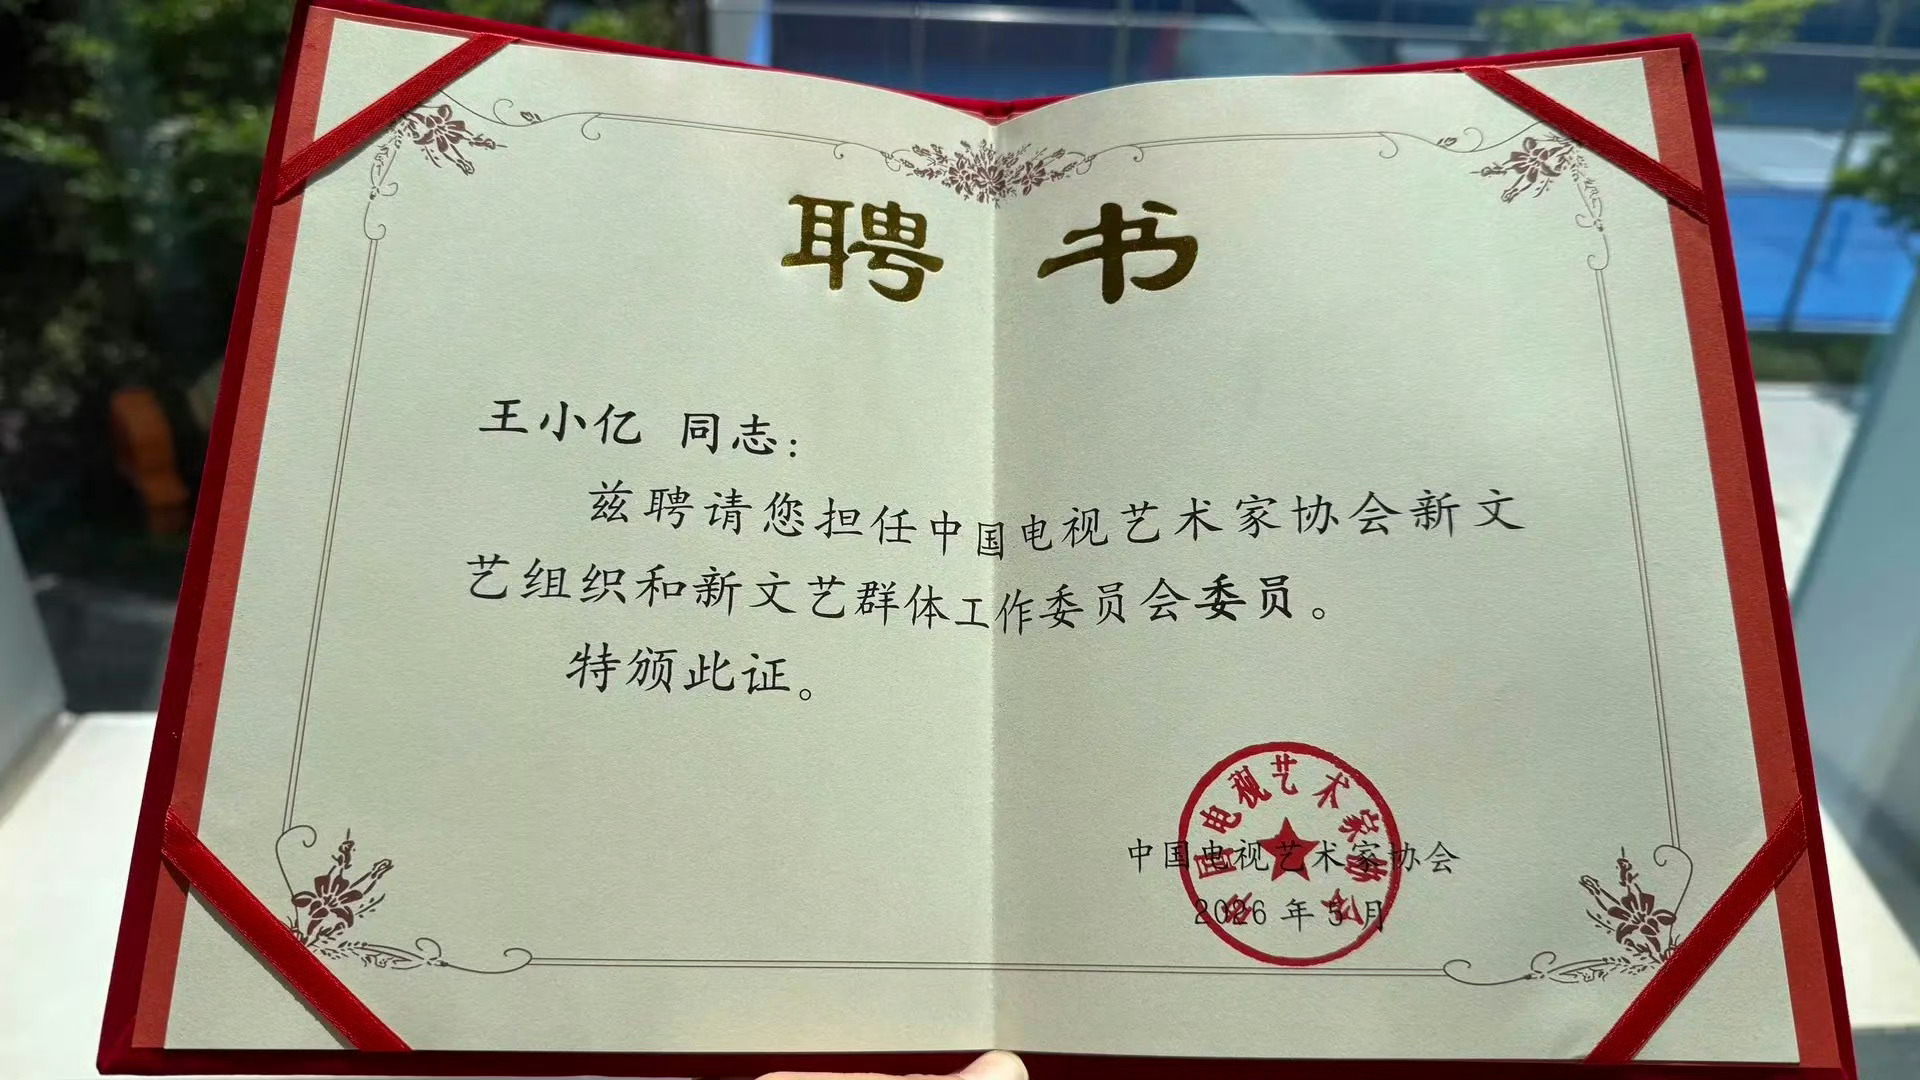 聘书
王小亿 同志：
兹聘请您担任中国电视艺术家协会新文
艺组织和新文艺群体工作委员会委员。
特颁此证。
中国电视艺术家协会
中国电视艺术家协会
2026 年 5 月